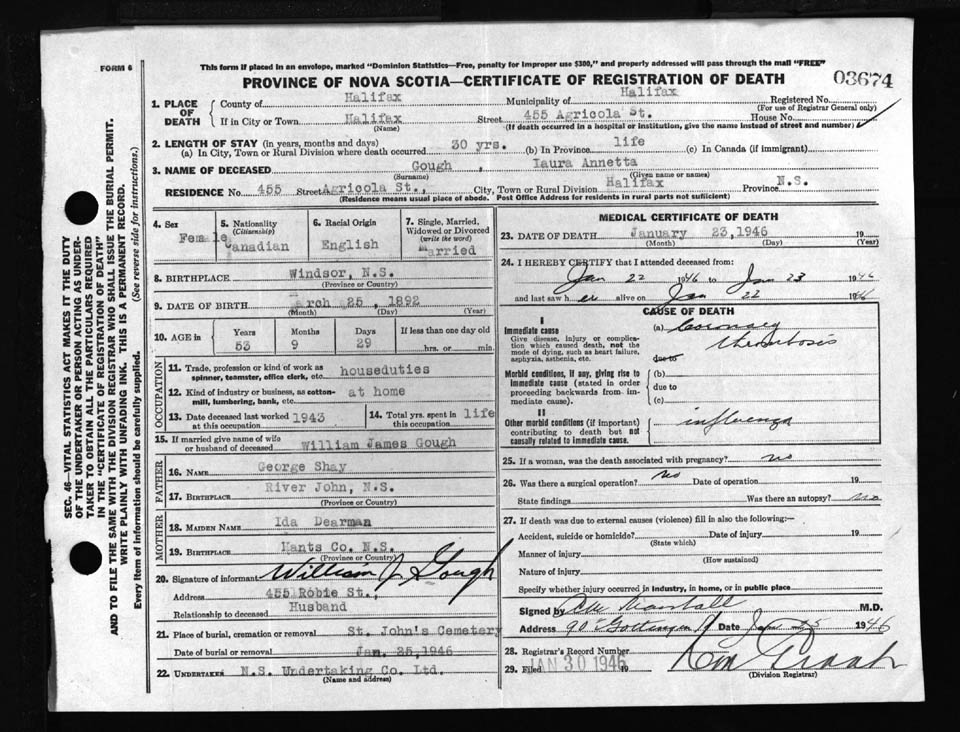 FORM 6
This form if placed in an envelope, marked "Dominion Statistics—Free, penalty for improper use $300," and properly addressed will pass through the mail "FREE"
PROVINCE OF NOVA SCOTIA—CERTIFICATE OF REGISTRATION OF DEATH
03674
1. PLACE OF DEATH
County of Halifax Municipality of Halifax Registered No.
(For use of Registrar General only)
If in City or Town Halifax Street 455 Agricola St. House No.
(Name) (If death occurred in a hospital or institution, give the name instead of street and number)
2. LENGTH OF STAY (in years, months and days)
(a) In City, Town or Rural Division where death occurred 30 yrs. (b) In Province life (c) In Canada (if immigrant)
3. NAME OF DECEASED Gough, Laura Annetta
(Surname) (Given name or names)
RESIDENCE No. 455 Street Agricola St., City, Town or Rural Division Halifax Province N.S.
(Residence means usual place of abode. Post Office Address for residents in rural parts not sufficient)
4. Sex
Female
5. Nationality
(Citizenship)
Canadian
6. Racial Origin
English
7. Single, Married, Widowed or Divorced
(write the word)
Married
8. BIRTHPLACE Windsor, N.S.
(Province or Country)
9. DATE OF BIRTH March 25, 1892
(Month) (Day) (Year)
10. AGE in Years Months Days If less than one day old
53 9 29 hrs. or min.
OCCUPATION
11. Trade, profession or kind of work as
spinner, teamster, office clerk, etc. houseduties
12. Kind of industry or business, as cotton-
mill, lumbering, bank, etc. at home
13. Date deceased last worked
at this occupation 1943
14. Total yrs. spent in
this occupation life
15. If married give name of wife
or husband of deceased William James Gough
FATHER
16. NAME George Shay
17. BIRTHPLACE River John, N.S.
(Province or Country)
MOTHER
18. MAIDEN NAME Ida Dearman
19. BIRTHPLACE Hants Co. N.S.
(Province or Country)
20. Signature of informant William J. Gough
Address 455 Robie St.,
Relationship to deceased Husband
21. Place of burial, cremation or removal St. John's Cemetery
Date of burial or removal Jan. 25, 1946
22. UNDERTAKER N.S. Undertaking Co. Ltd.
(Name and address)
MEDICAL CERTIFICATE OF DEATH
23. DATE OF DEATH January 23, 1946 19
(Month) (Day) (Year)
24. I HEREBY CERTIFY that I attended deceased from:
Jan 22 1946 to Jan 23 1946
and last saw her alive on Jan 22 1946
CAUSE OF DEATH
I
Immediate cause
Give disease, injury or complica-
tion which caused death, not the
mode of dying, such as heart failure,
asphyxia, asthenia, etc.
(a) Coronary
thrombosis
due to
Morbid conditions, if any, giving rise to
immediate cause (stated in order
proceeding backwards from im-
mediate cause).
(b)
due to
(c)
II
Other morbid conditions (if important)
contributing to death but not
causally related to immediate cause.
influenza
25. If a woman, was the death associated with pregnancy? no
26. Was there a surgical operation? no Date of operation 19
State findings Was there an autopsy? no
27. If death was due to external causes (violence) fill in also the following:—
Accident, suicide or homicide? Date of injury 19
(State which)
Manner of injury
(How sustained)
Nature of injury
Specify whether injury occurred in industry, in home, or in public place
Signed by Marshall M.D.
Address 90 Gottingen St Date Jan 25 1946
28. Registrar's Record Number
29. Filed JAN 30 1946 19
(Division Registrar)
SEC. 46—VITAL STATISTICS ACT MAKES IT THE DUTY
OF THE UNDERTAKER OR PERSON ACTING AS UNDER-
TAKER TO OBTAIN ALL THE PARTICULARS REQUIRED
IN THE "CERTIFICATE OF REGISTRATION OF DEATH"
AND TO FILE THE SAME WITH THE DIVISION REGISTRAR WHO SHALL ISSUE THE BURIAL PERMIT.
WRITE PLAINLY WITH UNFADING INK. THIS IS A PERMANENT RECORD.
Every item of information should be carefully supplied. (See reverse side for instructions.)